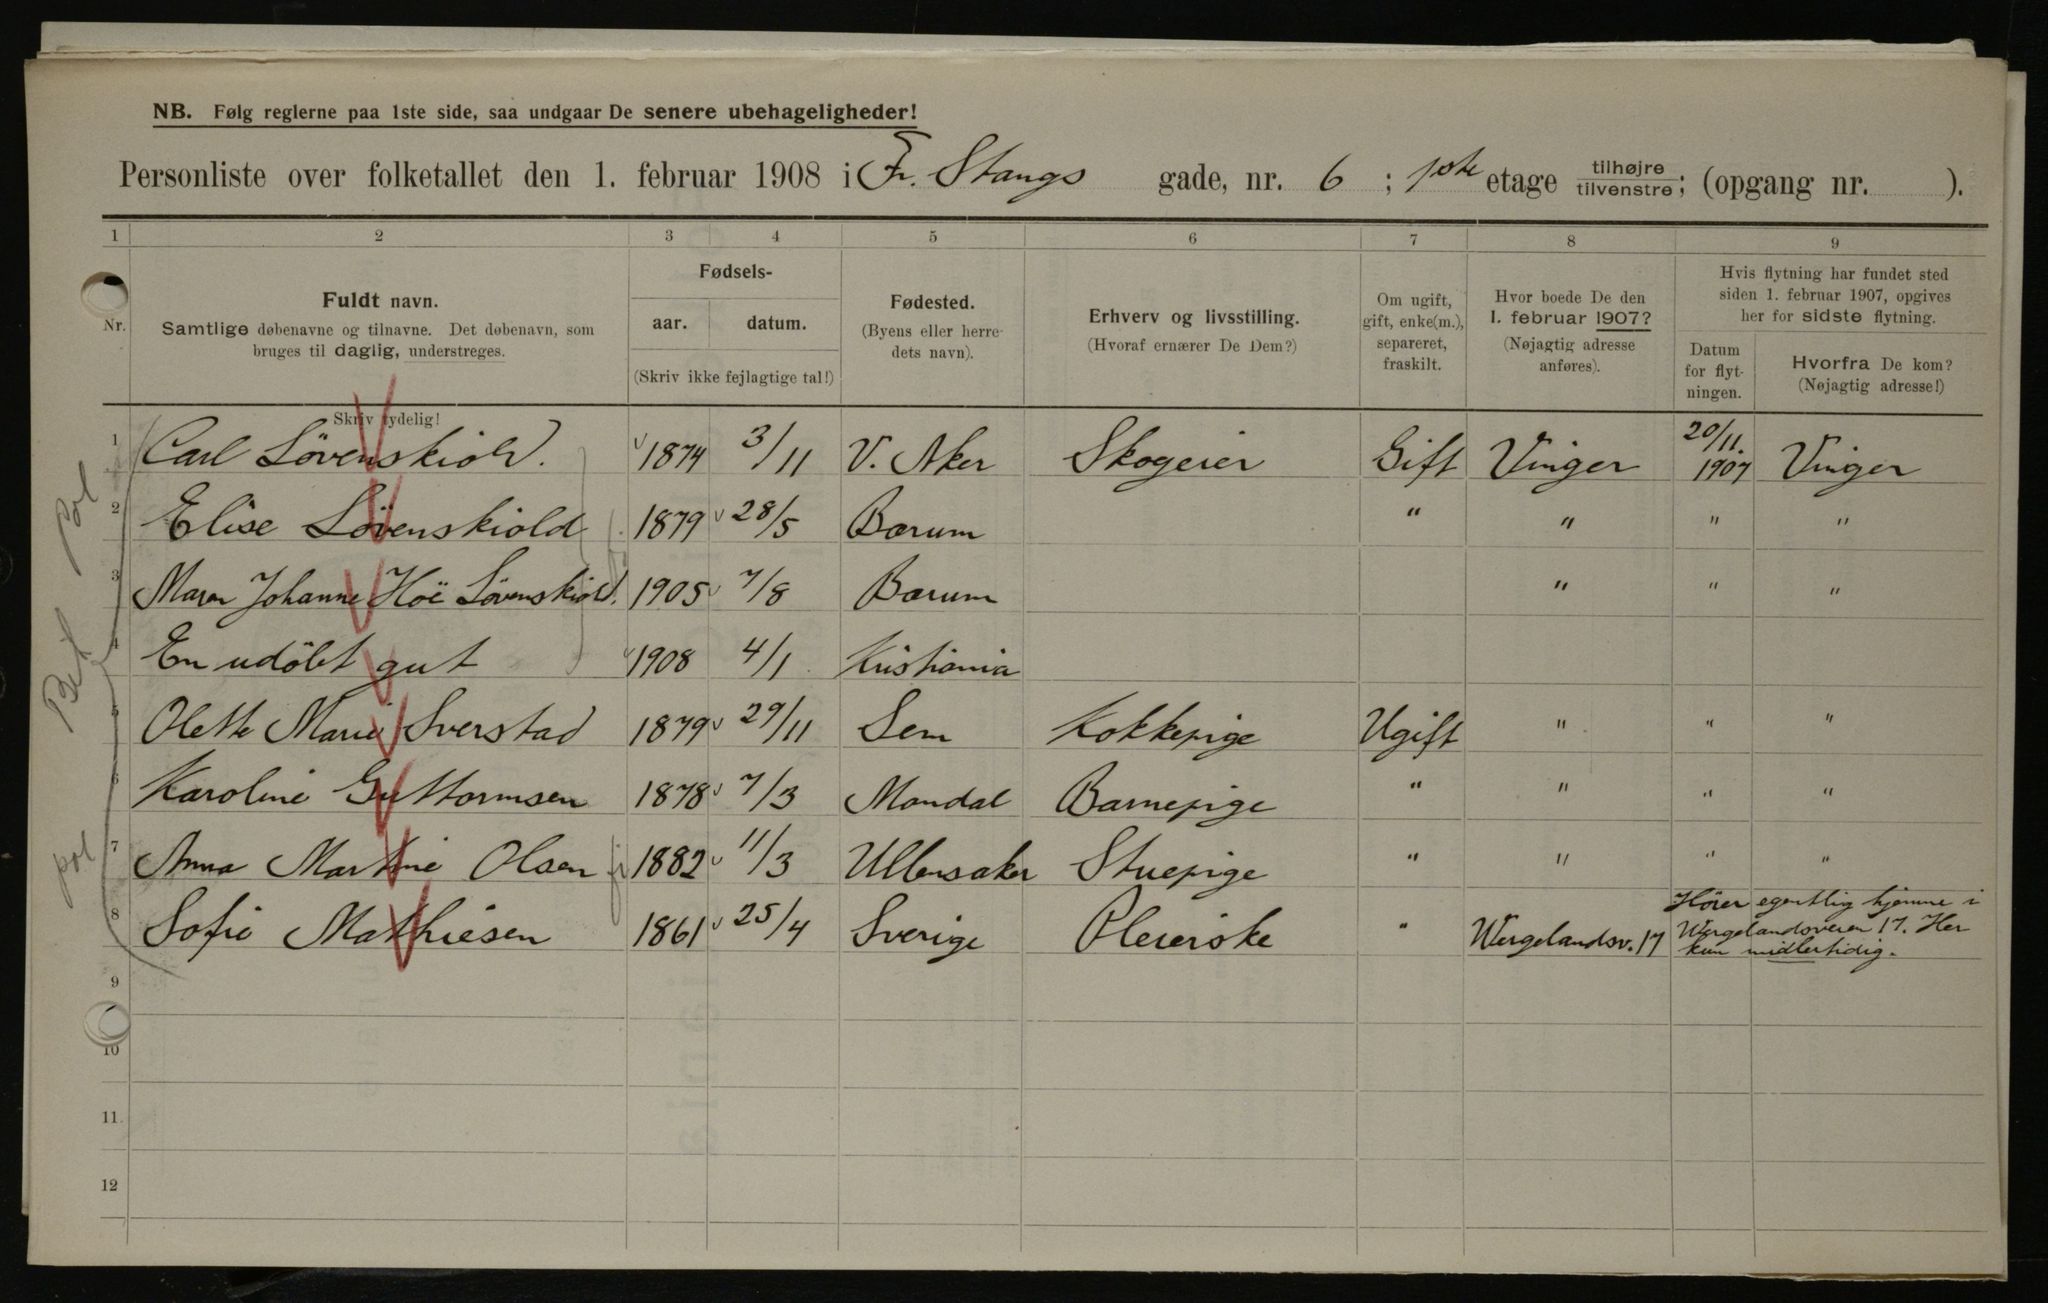 NB. Følg reglerne paa 1ste side, saa undgaar De senere ubehageligheder!
Personliste over folketallet den 1. februar 1908 i Fr. Stangs gade, nr. 6 ; 1ste etage tilhøjre/tilvenstre; (opgang nr. ).
1 2 3 4 5 6 7 8 9
Nr.
Fuldt navn.
Samtlige døbenavne og tilnavne. Det døbenavn, som
bruges til daglig, understreges.
Skriv tydelig!
Fødsels-
aar. datum.
(Skriv ikke fejlagtige tal!)
Fødested.
(Byens eller herre-
dets navn).
Erhverv og livsstilling.
(Hvoraf ernærer De Dem?)
Om ugift,
gift, enke(m.),
separeret,
fraskilt.
Hvor boede De den
1. februar 1907?
(Nøjagtig adresse
anføres).
Hvis flytning har fundet sted
siden 1. februar 1907, opgives
her for sidste flytning.
Datum
for flyt-
ningen.
Hvorfra De kom?
(Nøjagtig adresse!)
1 Carl Lövenskiold. 1874 3/11 V. Aker Skogeier Gift Vinger 20/11. 1907 Vinger
2 Elise Lövenskiold 1879 28/5 Bærum " " " "
3 Maren Johanne Höe Lövenskiold. 1905 7/8 Bærum " " "
4 En udöbt gut 1908 4/1 Kristiania
5 Olette Marie Sverstad 1879 29/11 Sem Kokkepige Ugift " " "
6 Karoline Guttormsen 1878 7/3 Mandal Barnepige " " " "
7 Anna Martine Olsen 1882 11/3 Ullensaker Stuepige " " " "
8 Sofie Mathiesen 1861 25/4 Sverige Pleierske " Wergelandsv. 17 Hörer egentlig hjemme i
Wergelandsveien 17. Her
kun midlertidig.
9
10
11
12